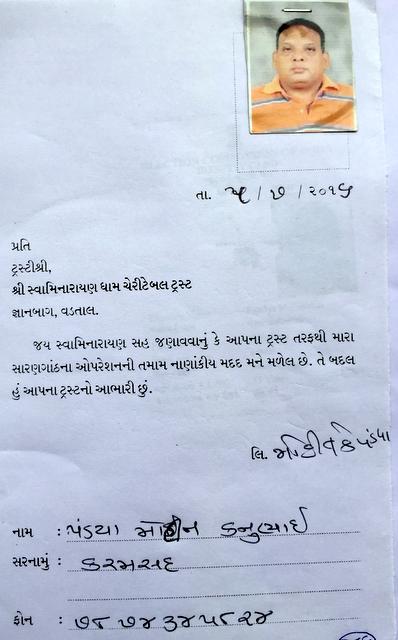 તા. ૫ / ૭ / ૨૦૧૬
પ્રતિ
ટ્રસ્ટીશ્રી,
શ્રી સ્વામિનારાયણ ધામ ચેરીટેબલ ટ્રસ્ટ
જ્ઞાનબાગ, વડતાલ.
જય સ્વામિનારાયણ સહ જણાવવાનું કે આપના ટ્રસ્ટ તરફથી મારા
સારણગાંઠના ઓપરેશનની તમામ નાણાંકીય મદદ મને મળેલ છે. તે બદલ
હું આપના ટ્રસ્ટનો આભારી છું.
લિ. કે પંડયા
નામ : પંડયા કનુભાઈ
સરનામું : કરમસદ
ફોન :